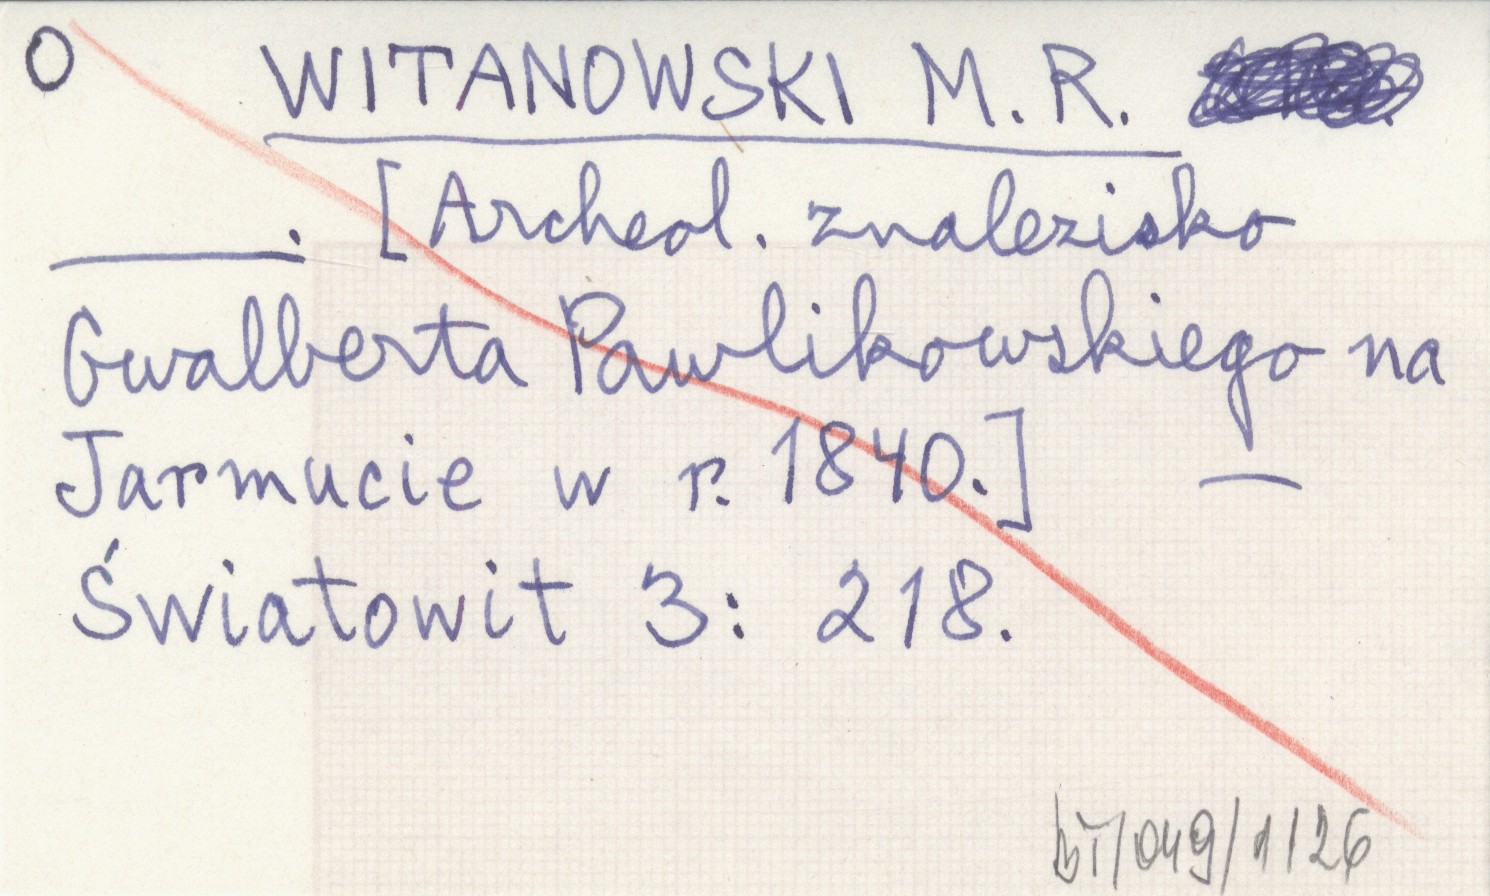 O WITANOWSKI M. R.
______. [Archeol. znalezisko
Gwalberta Pawlikowskiego na
Jarmucie w r. 1840.] —
Światowit 3: 218.
/049/1/26